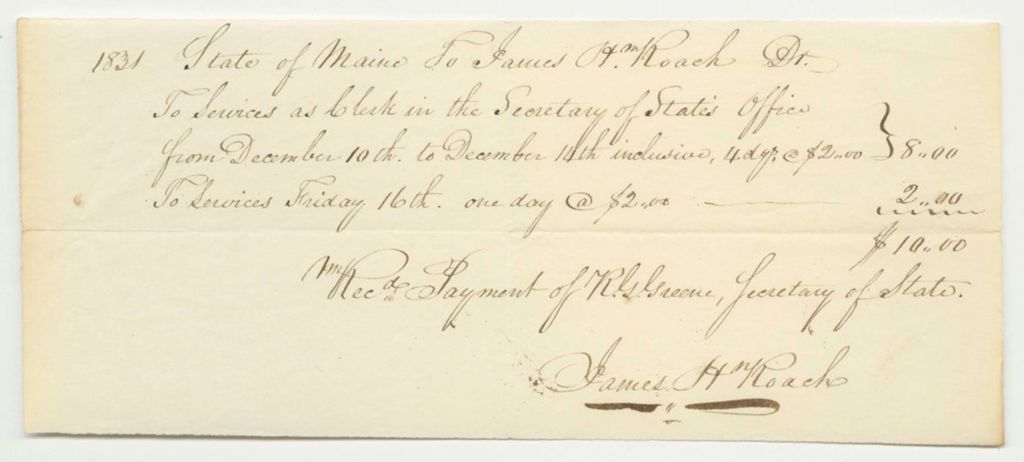 1831 State of Maine To James Hn. Roach Dr.
To Services as Clerk in the Secretary of State's Office
from December 10th. to December 14th inclusive, 4 dys. @ $2.,00 } 8.,00
To Services Friday 16th. one day @ $2.,00 —— 2.,00
$10.,00
Recd. Payment of R. G. Greene, Secretary of State.
James Hn Roach